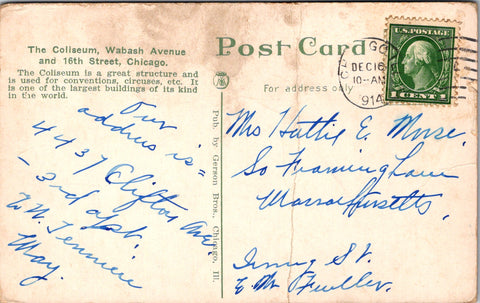 The Coliseum, Wabash Avenue
and 16th Street, Chicago.
The Coliseum is a great structure and
is used for conventions, circuses, etc. It
is one of the largest buildings of its kind
in the world.
Our
address is =
4437 Clifton Ave.
- 3rd apt.
May.
Pub. by Gerson Bros., Chicago, Ill.
Post Card
For address only
U.S. POSTAGE
1 CENT 1
CHICAGO
DEC 16
10-AM
1914
Mrs Hattie E. Morse.
So Framingham
Massachusetts.
Irving St.
E M Fuller